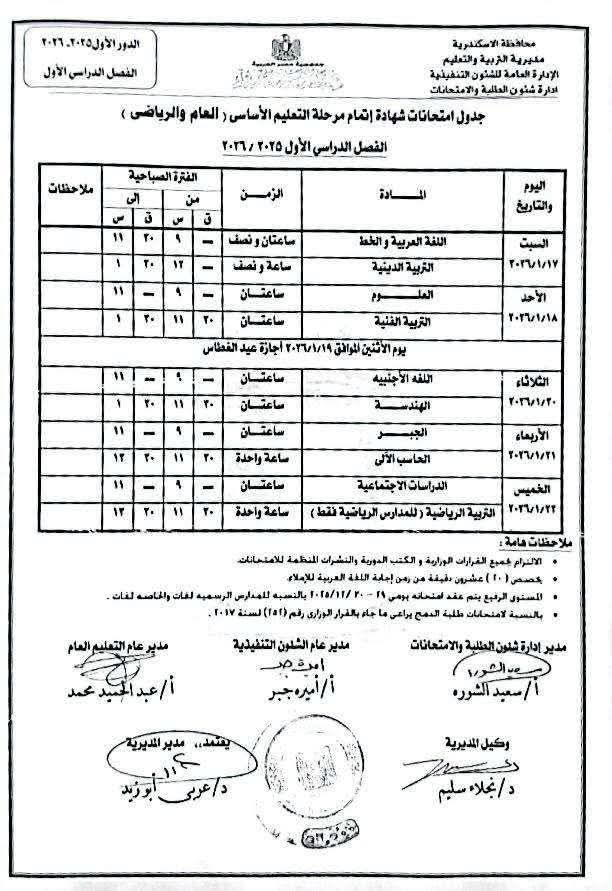 محافظة الاسكندرية
مديرية التربية والتعليم
الإدارة العامة للشئون التنفيذية
ادارة شئون الطلبة والامتحانات
جمهورية مصر العربية
الدور الأول ٢٠٢٥ـ٢٠٢٦
الفصل الدراسي الأول
جدول امتحانات شهادة إتمام مرحلة التعليم الأساسى ( العام والرياضى )
الفصل الدراسي الأول ٢٠٢٥ / ٢٠٢٦
اليوم والتاريخ المــادة الزمن الفترة الصباحية ملاحظات
من إلى
ق س ق س
السبت ٢٠٢٦/١/١٧ اللغة العربية و الخط ساعتان و نصف ــ ٩ ٣٠ ١١
التربية الدينية ساعة و نصف ــ ١٢ ٣٠ ١
الأحد ٢٠٢٦/١/١٨ العلــــوم ساعتــان ــ ٩ ــ ١١
التربية الفنية ساعتــان ٣٠ ١١ ٣٠ ١
يوم الأثنين الموافق ٢٠٢٦/١/١٩ أجازة عيد الغطاس
الثلاثاء ٢٠٢٦/١/٢٠ اللغه الأجنبيه ساعتــان ــ ٩ ــ ١١
الهندســة ساعتــان ٣٠ ١١ ٣٠ ١
الأربعاء ٢٠٢٦/١/٢١ الجبــر ساعتــان ــ ٩ ــ ١١
الحاسب الآلى ساعة واحدة ٣٠ ١١ ٣٠ ١٢
الخميس ٢٠٢٦/١/٢٢ الدراسات الاجتماعية ساعتــان ــ ٩ ــ ١١
التربية الرياضية ( للمدارس الرياضية فقط ) ساعة واحدة ٣٠ ١١ ٣٠ ١٢
ملاحظات هامة :
• الالتزام بجميع القرارات الوزارية و الكتب الدورية والنشرات المنظمة للامتحانات.
• يخصص (٢٠) عشرون دقيقة من زمن إجابة اللغة العربية للإملاء.
• المستوى الرفيع يتم عقد امتحانه يومى ٢٩ – ٣٠ /٢٠٢٥/١٢ بالنسبه للمدارس الرسميه لغات والخاصه لغات .
• بالنسبة لامتحانات طلبة الدمج يراعى ما جاء بالقرار الوزارى رقم (٢٥٢) لسنة ٢٠١٧
مدير إدارة شئون الطلبة والامتحانات
مدير عام الشئون التنفيذية
مدير عام التعليم العام
أ/ سعيد الشوره
أ/ أميره جبر
أ/ عبد الحميد محمد
وكيل المديرية
يعتمد،، مدير المديرية
د/ نجلاء سليم
د/ عربى أبوزيد